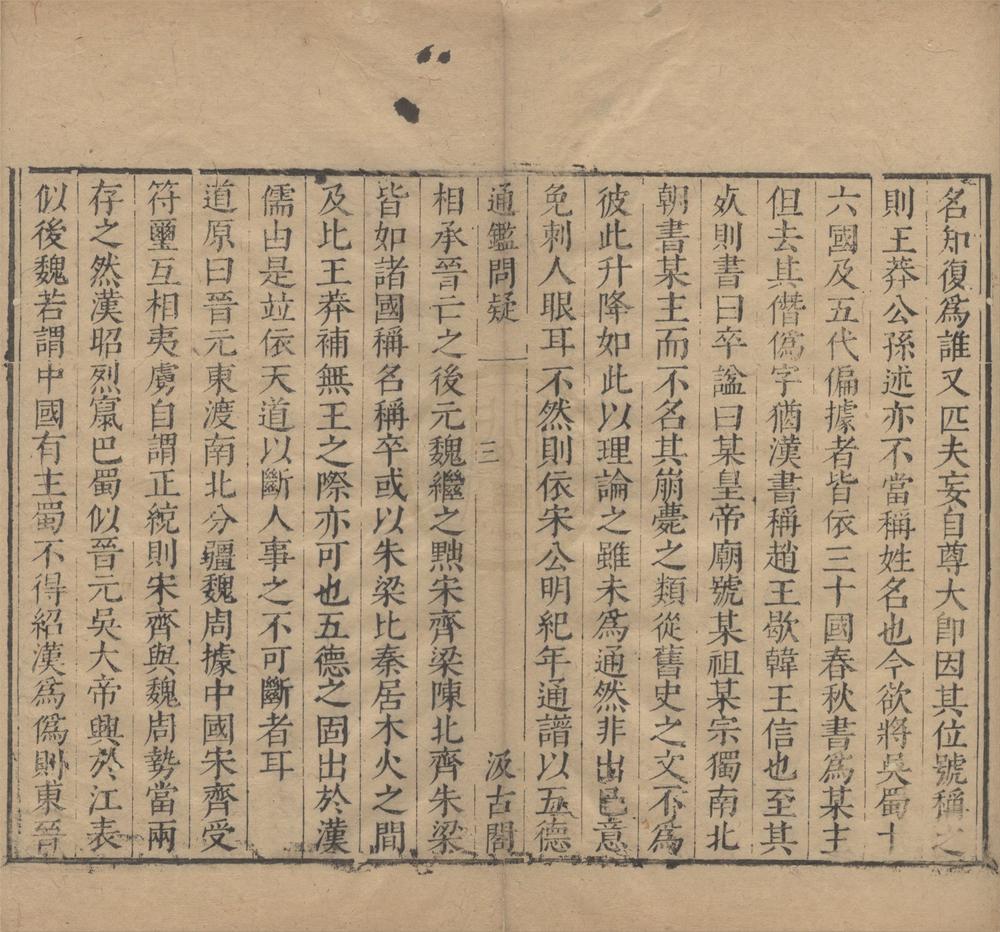 名知復爲誰又匹夫妄自尊大即因其位號稱之
則王莽公孫述亦不當稱姓名也今欲將吳蜀十
六國及五代偏據者皆依三十國春秋書爲某主
但去其僭僞字猶漢書稱趙王歇韓王信也至其
死則書曰卒謚曰某皇帝廟號某祖某宗獨南北
朝書某主而不名其崩薨之類從舊史之文不爲
彼此升降如此以理論之雖未爲通然非出己意
免刺人眼耳不然則依宋公明紀年通譜以五德
通鑑問疑 三 汲古閣
相承晉亡之後元魏繼之黜宋齊梁陳北齊朱梁
皆如諸國稱名稱卒或以朱梁比秦居木火之間
及比王莽補無王之際亦可也五德之固出於漢
儒由是竝依天道以斷人事之不可斷者耳
道原曰晉元東渡南北分疆魏周據中國宋齊受
符璽互相夷虜自謂正統則宋齊與魏周勢當兩
存之然漢昭烈竄巴蜀似晉元吳大帝興於江表
似後魏若謂中國有主蜀不得紹漢爲僞則東晉